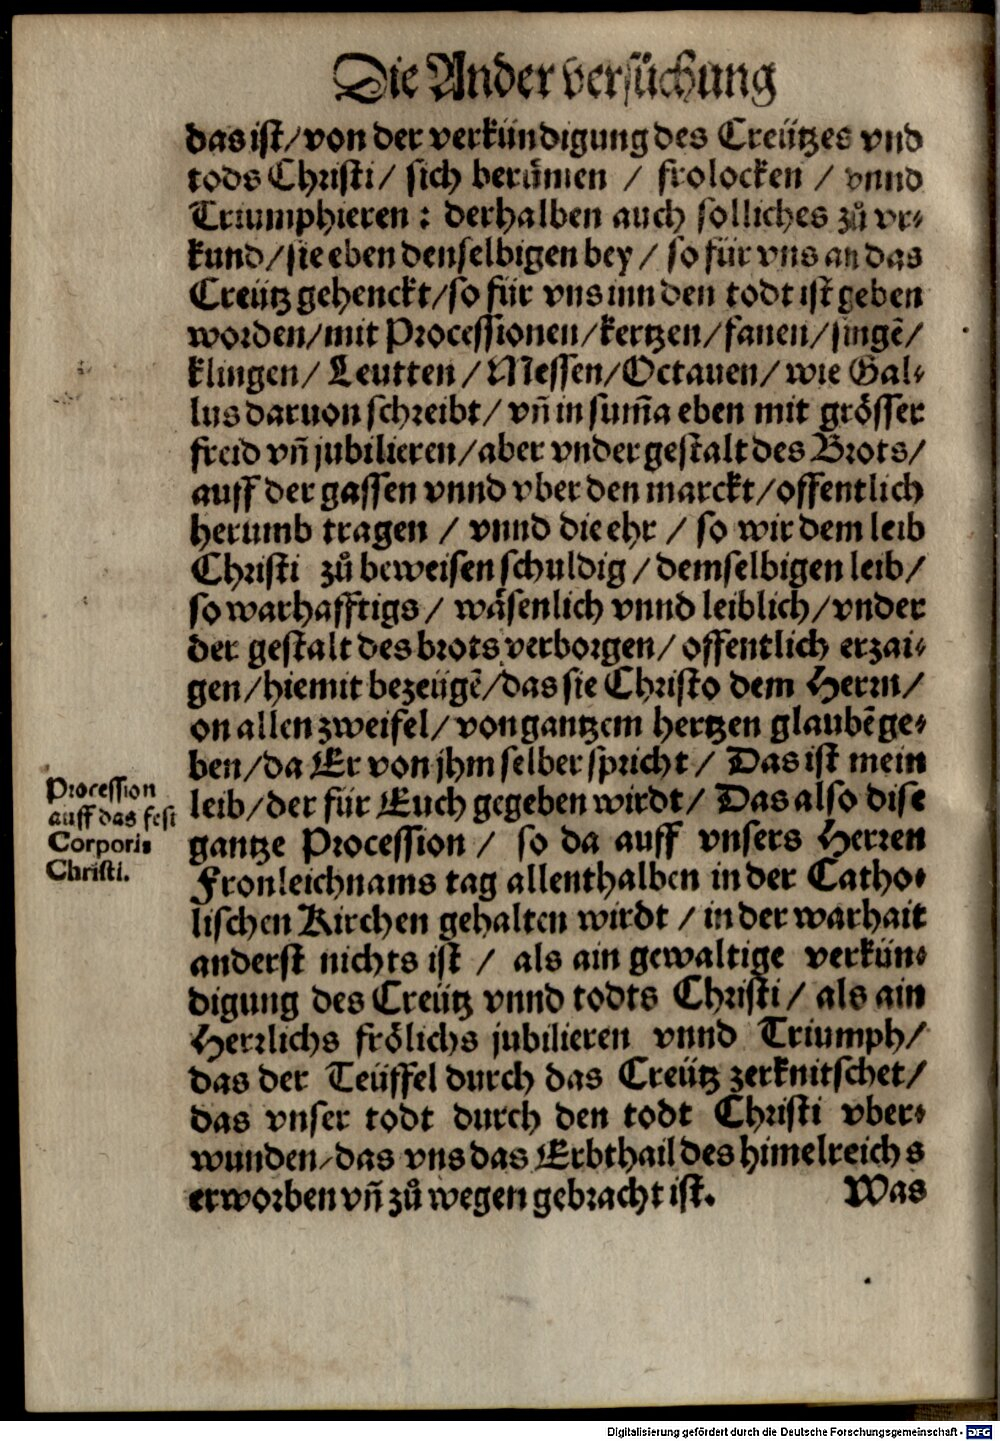 Die Ander versüchung
das ist/ von der verkündigung des Creützes vnd
tods Christi/ sich berůmen / frolocken / vnnd
Triumphieren : derhalben auch solliches zů vr⸗
kund/ sie eben denselbigen bey / so für vns an das
Creütz gehenckt/ so für vns inn den todt ist geben
worden/ mit Processionen/ kertzen/ fanen/ singẽ/
klingen/ Leutten / Messen/ Octauen/ wie Gal⸗
lus daruon schreibt/ vñ in sum̃a eben mit grösser
freid vñ jubilieren/ aber vnder gestalt des Brots/
auff der gassen vnnd vber den marckt/ offentlich
herumb tragen / vnnd die ehr / so wir dem leib
Christi zů beweisen schuldig / demselbigen leib/
so warhafftigs / wäsenlich vnnd leiblich/ vnder
der gestalt des brots verborgen/ offentlich erzai⸗
gen/ hiemit bezeügẽ/ das sie Christo dem Herrn/
on allen zweifel/ von gantzem hertzen glaubẽ ge⸗
ben/ da Er von jhm selber spricht / Das ist mein
leib/ der für Euch gegeben wirdt/ Das also dise
gantze Procession / so da auff vnsers Herren
Fronleichnams tag allenthalben in der Catho⸗
lischen Kirchen gehalten wirdt / in der warhait
anderst nichts ist / als ain gewaltige verkün⸗
digung des Creütz vnnd todts Christi/ als ain
Herrlichs frölichs jubilieren vnnd Triumph/
das der Teüffel durch das Creütz zerknitschet/
das vnser todt durch den todt Christi vber⸗
wunden/ das vns das Erbthail des himelreichs
erworben vñ zů wegen gebracht ist. Was
Procession
auff das fest
Corporis
Christi.
Digitalisierung gefördert durch die Deutsche Forschungsgemeinschaft - DFG